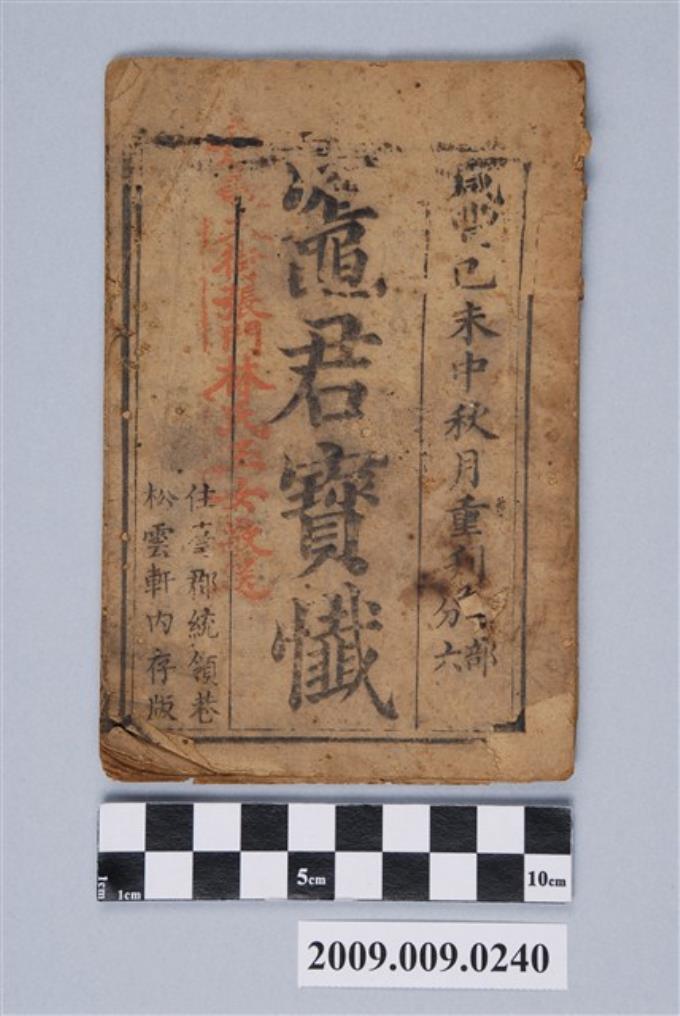 咸豐己未中秋月重刊
部
分六
竈君寶懺
街張門林氏玉女敬送
住臺郡統領巷
松雲軒內存版
5cm
10cm
1cm
1cm
2009.009.0240